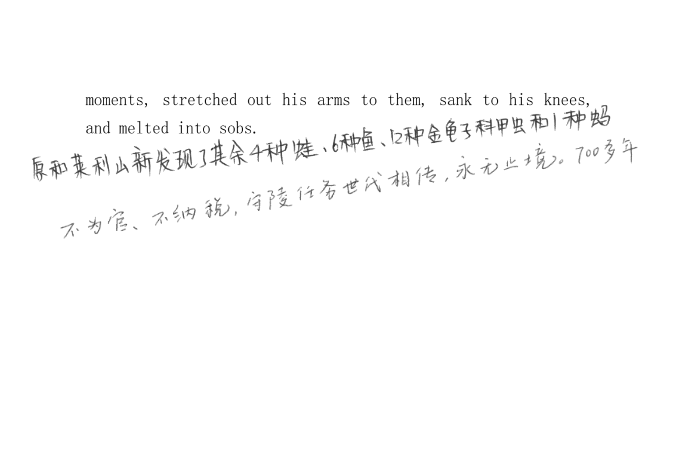 moments, stretched out his arms to them, sank to his knees,
and melted into sobs.
原和莱利山新发现了其余4种蛙、6种鱼、12种金龟子科甲虫和1种蚂
不为官、不纳税，守陵任务世代相传，永无止境。700多年